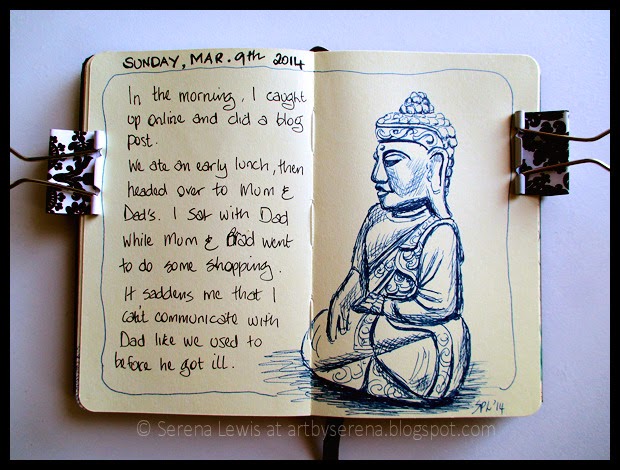 SUNDAY, MAR. 9th 2014
In the morning, I caught
up online and did a blog
post.
We ate an early lunch, then
headed over to Mum &
Dad's. I sat with Dad
while Mum & Brad went
to do some shopping.
It saddens me that I
can't communicate with
Dad like we used to
before he got ill.
SPL '14
© Serena Lewis at artbyserena.blogspot.com